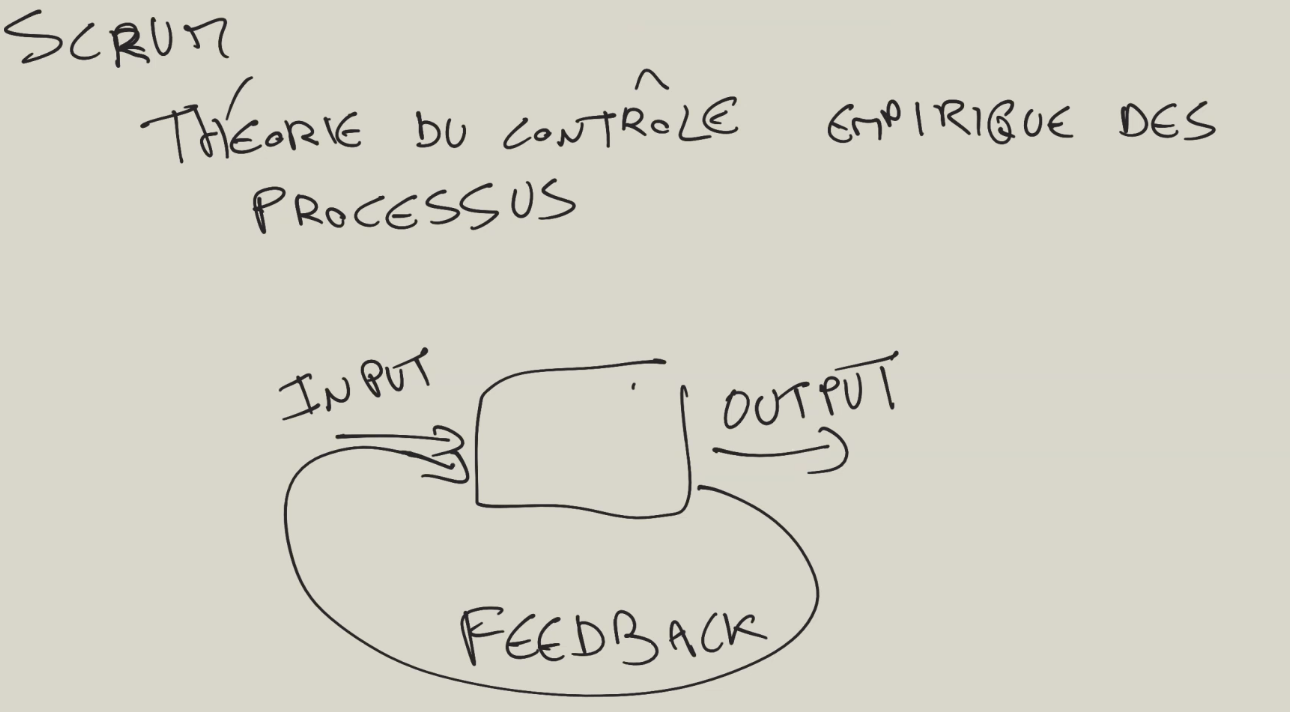 SCRUM
THÉORIE DU CONTRÔLE EMPIRIQUE DES
PROCESSUS
INPUT
OUTPUT
FEEDBACK